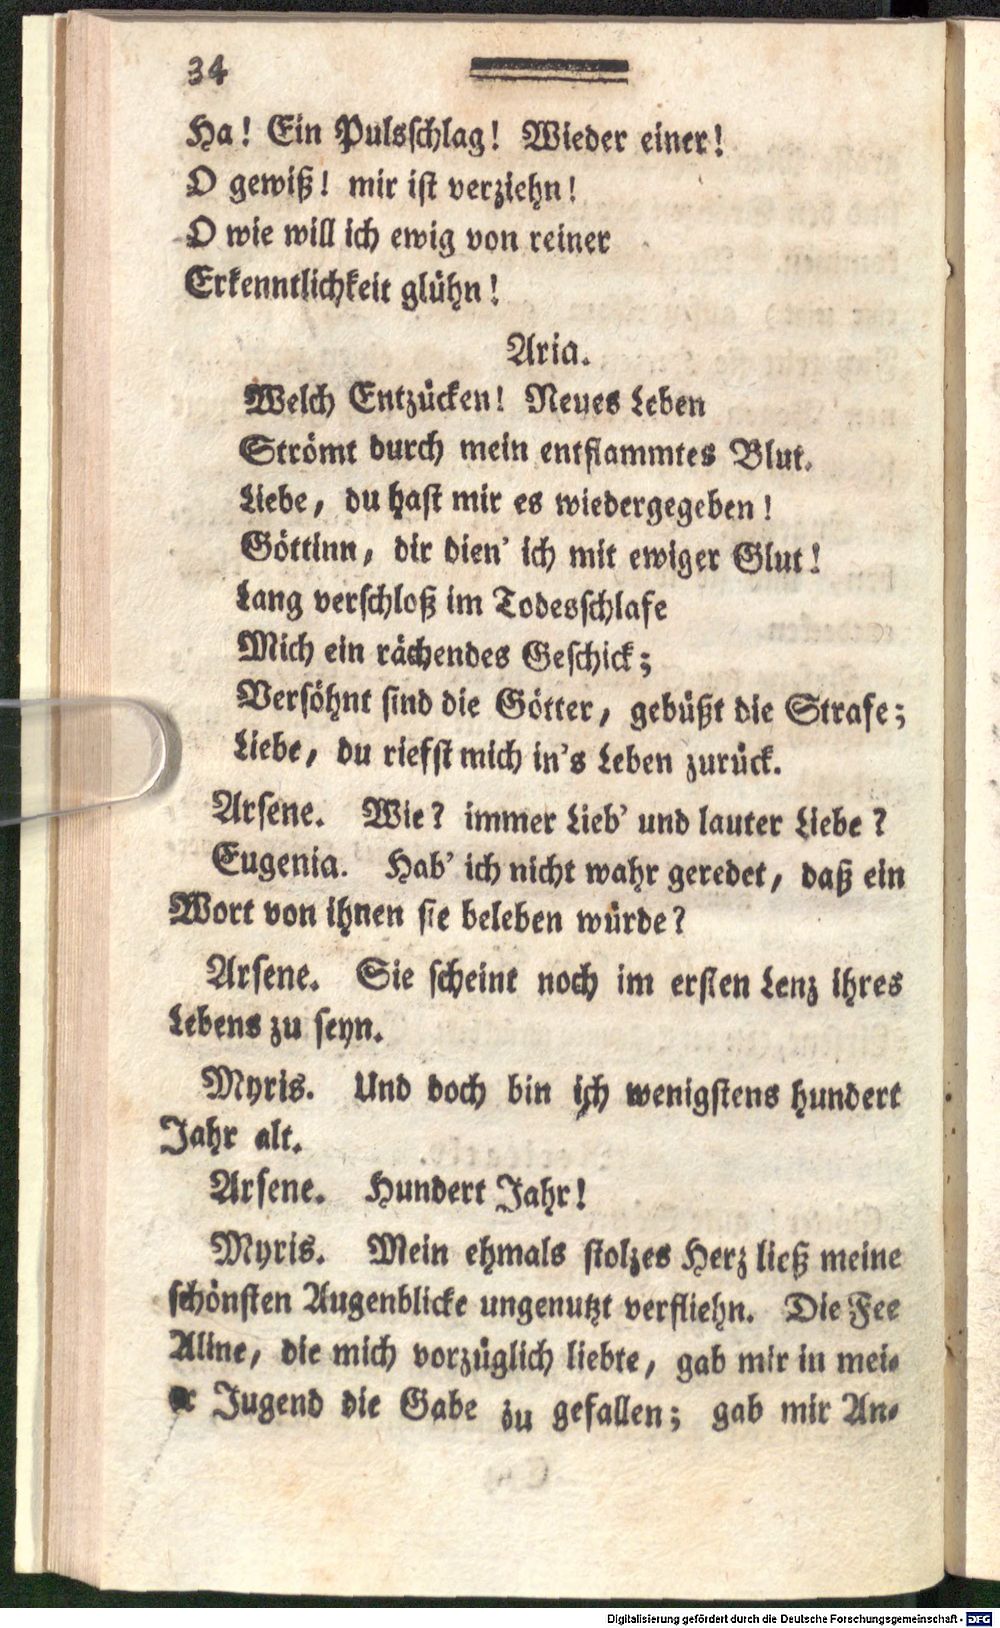 34
Ha! Ein Pulsschlag! Wieder einer!
O gewiß! mir ist verziehn!
O wie will ich ewig von reiner
Erkenntlichkeit glühn!
Aria.
Welch Entzücken! Neues Leben
Strömt durch mein entflammtes Blut.
Liebe, du hast mir es wiedergegeben!
Göttinn, dir dien' ich mit ewiger Glut!
Lang verschloß im Todesschlafe
Mich ein rächendes Geschick;
Versöhnt sind die Götter, gebüßt die Strafe;
Liebe, du riefst mich in's Leben zurück.
Arsene. Wie? immer Lieb' und lauter Liebe?
Eugenia. Hab' ich nicht wahr geredet, daß ein
Wort von ihnen sie beleben würde?
Arsene. Sie scheint noch im ersten Lenz ihres
Lebens zu seyn.
Myris. Und doch bin ich wenigstens hundert
Jahr alt.
Arsene. Hundert Jahr!
Myris. Mein ehmals stolzes Herz ließ meine
schönsten Augenblicke ungenutzt verfliehn. Die Fee
Aline, die mich vorzüglich liebte, gab mir in mei-
er Jugend die Gabe zu gefallen; gab mir An-
Digitalisierung gefördert durch die Deutsche Forschungsgemeinschaft - DFG